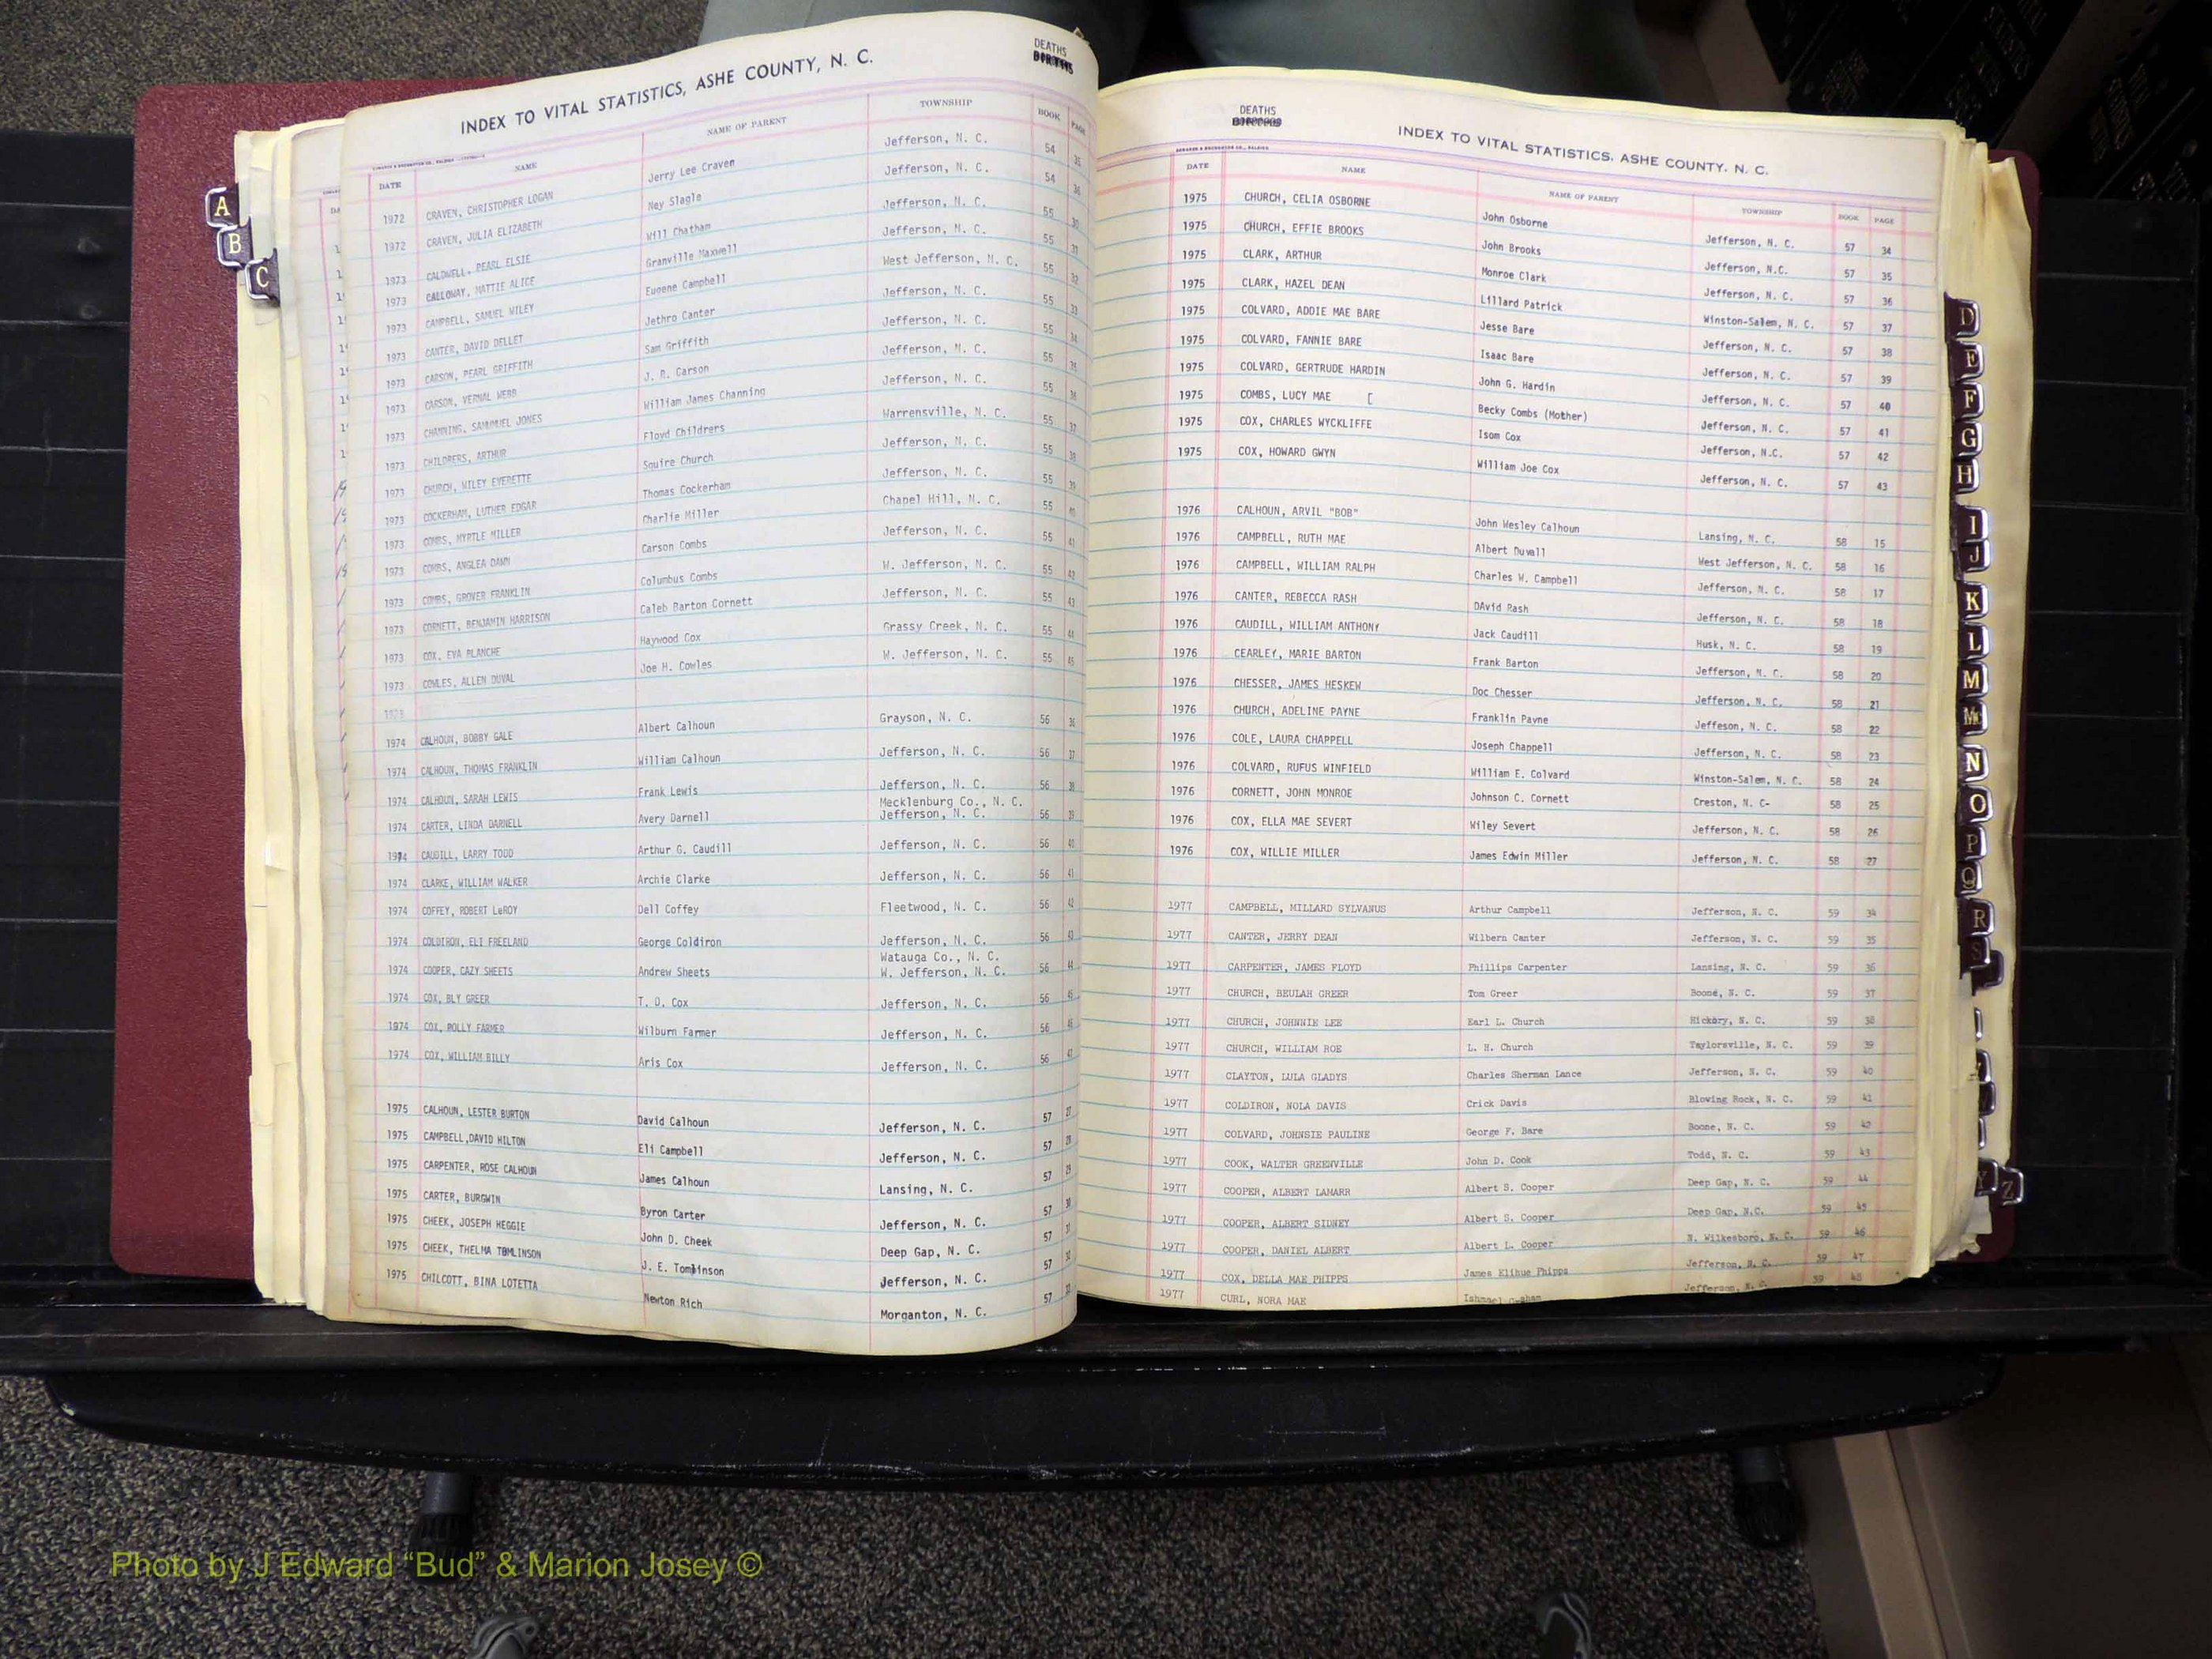 INDEX TO VITAL STATISTICS, ASHE COUNTY, N. C.
DEATHS
DATE NAME NAME OF PARENT TOWNSHIP BOOK PAGE
1972 CRAVEN, CHRISTOPHER LOGAN Jerry Lee Craven Jefferson, N. C. 54 35
1972 CRAVEN, JULIA ELIZABETH Ney Slagle Jefferson, N. C. 54 36
1973 CALDWELL, PEARL ELSIE Will Chatham Jefferson, N. C. 55 30
1973 CALLOWAY, MATTIE ALICE Granville Maxwell Jefferson, N. C. 55 31
1973 CAMPBELL, SAMUEL WILEY Eugene Campbell West Jefferson, N. C. 55 32
1973 CANTER, DAVID DELLET Jethro Canter Jefferson, N. C. 55 33
1973 CARSON, PEARL GRIFFITH Sam Griffith Jefferson, N. C. 55 34
1973 CARSON, VERNAL WEBB J. R. Carson Jefferson, N. C. 55 35
1973 CHANNING, SAMOMUEL JONES William James Channing Jefferson, N. C. 55 36
1973 CHILDRERS, ARTHUR Floyd Childrers Warrensville, N. C. 55 37
1973 CHURCH, WILEY EVERETTE Squire Church Jefferson, N. C. 55 38
1973 COCKERHAM, LUTHER EDGAR Thomas Cockerham Jefferson, N. C. 55 39
1973 COMBS, MYRTLE MILLER Charlie Miller Chapel Hill, N. C. 55 40
1973 COMBS, ANGLEA DAWN Carson Combs Jefferson, N. C. 55 41
1973 COMBS, GROVER FRANKLIN Columbus Combs W. Jefferson, N. C. 55 42
1973 CORNETT, BENJAMIN HARRISON Caleb Barton Cornett Jefferson, N. C. 55 43
1973 COX, EVA BLANCHE Haywood Cox Grassy Creek, N. C. 55 44
1973 COWLES, ALLEN DUVAL Joe H. Cowles W. Jefferson, N. C. 55 45
1974 CALHOUN, BOBBY GALE Albert Calhoun Grayson, N. C. 56 36
1974 CALHOUN, THOMAS FRANKLIN William Calhoun Jefferson, N. C. 56 37
1974 CALHOUN, SARAH LEWIS Frank Lewis Jefferson, N. C. 56 38
Mecklenburg Co., N. C.
1974 CARTER, LINDA DARNELL Avery Darnell Jefferson, N. C. 56 39
1974 CAUDILL, LARRY TODD Arthur G. Caudill Jefferson, N. C. 56 40
1974 CLARKE, WILLIAM WALKER Archie Clarke Jefferson, N. C. 56 41
1974 COFFEY, ROBERT LeROY Dell Coffey Fleetwood, N. C. 56 42
1974 COLDIRON, ELI FREELAND George Coldiron Jefferson, N. C. 56 43
Watauga Co., N. C.
1974 COOPER, CAZY SHEETS Andrew Sheets W. Jefferson, N. C. 56 44
1974 COX, BLY GREER T. D. Cox Jefferson, N. C. 56 45
1974 COX, POLLY FARMER Wilburn Farmer Jefferson, N. C. 56 46
1974 COX, WILLIAM BILLY Aris Cox Jefferson, N. C. 56 47
1975 CALHOUN, LESTER BURTON David Calhoun Jefferson, N. C. 57 27
1975 CAMPBELL,DAVID HILTON Eli Campbell Jefferson, N. C. 57 28
1975 CARPENTER, ROSE CALHOUN James Calhoun Lansing, N. C. 57 29
1975 CARTER, BURGWIN Byron Carter Jefferson, N. C. 57 30
1975 CHEEK, JOSEPH HEGGIE John D. Cheek Deep Gap, N. C. 57 31
1975 CHEEK, THELMA TOMLINSON J. E. Tomlinson Jefferson, N. C. 57 32
1975 CHILCOTT, BINA LOTETTA Newton Rich Morganton, N. C. 57 33
DEATHS
INDEX TO VITAL STATISTICS, ASHE COUNTY, N. C.
DATE NAME NAME OF PARENT TOWNSHIP BOOK PAGE
1975 CHURCH, CELIA OSBORNE John Osborne Jefferson, N. C. 57 34
1975 CHURCH, EFFIE BROOKS John Brooks Jefferson, N.C. 57 35
1975 CLARK, ARTHUR Monroe Clark Jefferson, N. C. 57 36
1975 CLARK, HAZEL DEAN Lillard Patrick Winston-Salem, N. C. 57 37
1975 COLVARD, ADDIE MAE BARE Jesse Bare Jefferson, N. C. 57 38
1975 COLVARD, FANNIE BARE Isaac Bare Jefferson, N. C. 57 39
1975 COLVARD, GERTRUDE HARDIN John G. Hardin Jefferson, N. C. 57 40
1975 COMBS, LUCY MAE [ Becky Combs (Mother) Jefferson, N. C. 57 41
1975 COX, CHARLES WYCKLIFFE Isom Cox Jefferson, N.C. 57 42
1975 COX, HOWARD GWYN William Joe Cox Jefferson, N. C. 57 43
1976 CALHOUN, ARVIL "BOB" John Wesley Calhoun Lansing, N. C. 58 15
1976 CAMPBELL, RUTH MAE Albert Duvall West Jefferson, N. C. 58 16
1976 CAMPBELL, WILLIAM RALPH Charles W. Campbell Jefferson, N. C. 58 17
1976 CANTER, REBECCA RASH DAvid Rash Jefferson, N. C. 58 18
1976 CAUDILL, WILLIAM ANTHONY Jack Caudill Husk, N. C. 58 19
1976 CEARLEY, MARIE BARTON Frank Barton Jefferson, N. C. 58 20
1976 CHESSER, JAMES HESKEW Doc Chesser Jefferson, N. C. 58 21
1976 CHURCH, ADELINE PAYNE Franklin Payne Jeffeson, N. C. 58 22
1976 COLE, LAURA CHAPPELL Joseph Chappell Jefferson, N. C. 58 23
1976 COLVARD, RUFUS WINFIELD William E. Colvard Winston-Salem, N. C. 58 24
1976 CORNETT, JOHN MONROE Johnson C. Cornett Creston, N. C- 58 25
1976 COX, ELLA MAE SEVERT Wiley Severt Jefferson, N. C. 58 26
1976 COX, WILLIE MILLER James Edwin Miller Jefferson, N. C. 58 27
1977 CAMPBELL, MILLARD SYLVANUS Arthur Campbell Jefferson, N. C. 59 34
1977 CANTER, JERRY DEAN Wilbern Canter Jefferson, N. C. 59 35
1977 CARPENTER, JAMES FLOYD Phillips Carpenter Lansing, N. C. 59 36
1977 CHURCH, BEULAH GREER Tom Greer Boone, N. C. 59 37
1977 CHURCH, JOHNNIE LEE Earl L. Church Hickory, N. C. 59 38
1977 CHURCH, WILLIAM ROE L. H. Church Taylorsville, N. C. 59 39
1977 CLAYTON, LULA GLADYS Charles Sherman Lance Jefferson, N. C. 59 40
1977 COLDIRON, NOLA DAVIS Crick Davis Blowing Rock, N. C. 59 41
1977 COLVARD, JOHNSIE PAULINE George F. Bare Boone, N. C. 59 42
1977 COOK, WALTER GREENVILLE John D. Cook Todd, N. C. 59 43
1977 COOPER, ALBERT LAMARR Albert S. Cooper Deep Gap, N. C. 59 44
1977 COOPER, ALBERT SIDNEY Albert S. Cooper Deep Gap, N.C. 59 45
1977 COOPER, DANIEL ALBERT Albert L. Cooper N. Wilkesboro, N. C. 59 46
1977 COX, DELLA MAE PHIPPS James Elihue Phipps Jefferson, N. C. 59 47
1977 CURL, NORA MAE Ishmael Jefferson, N. C. 59 48
A
B
C
D
E
F
G
H
I
J
K
L
M
Mc
N
O
P
Q
R
S
Y
Z
Photo by J Edward “Bud” & Marion Josey ©